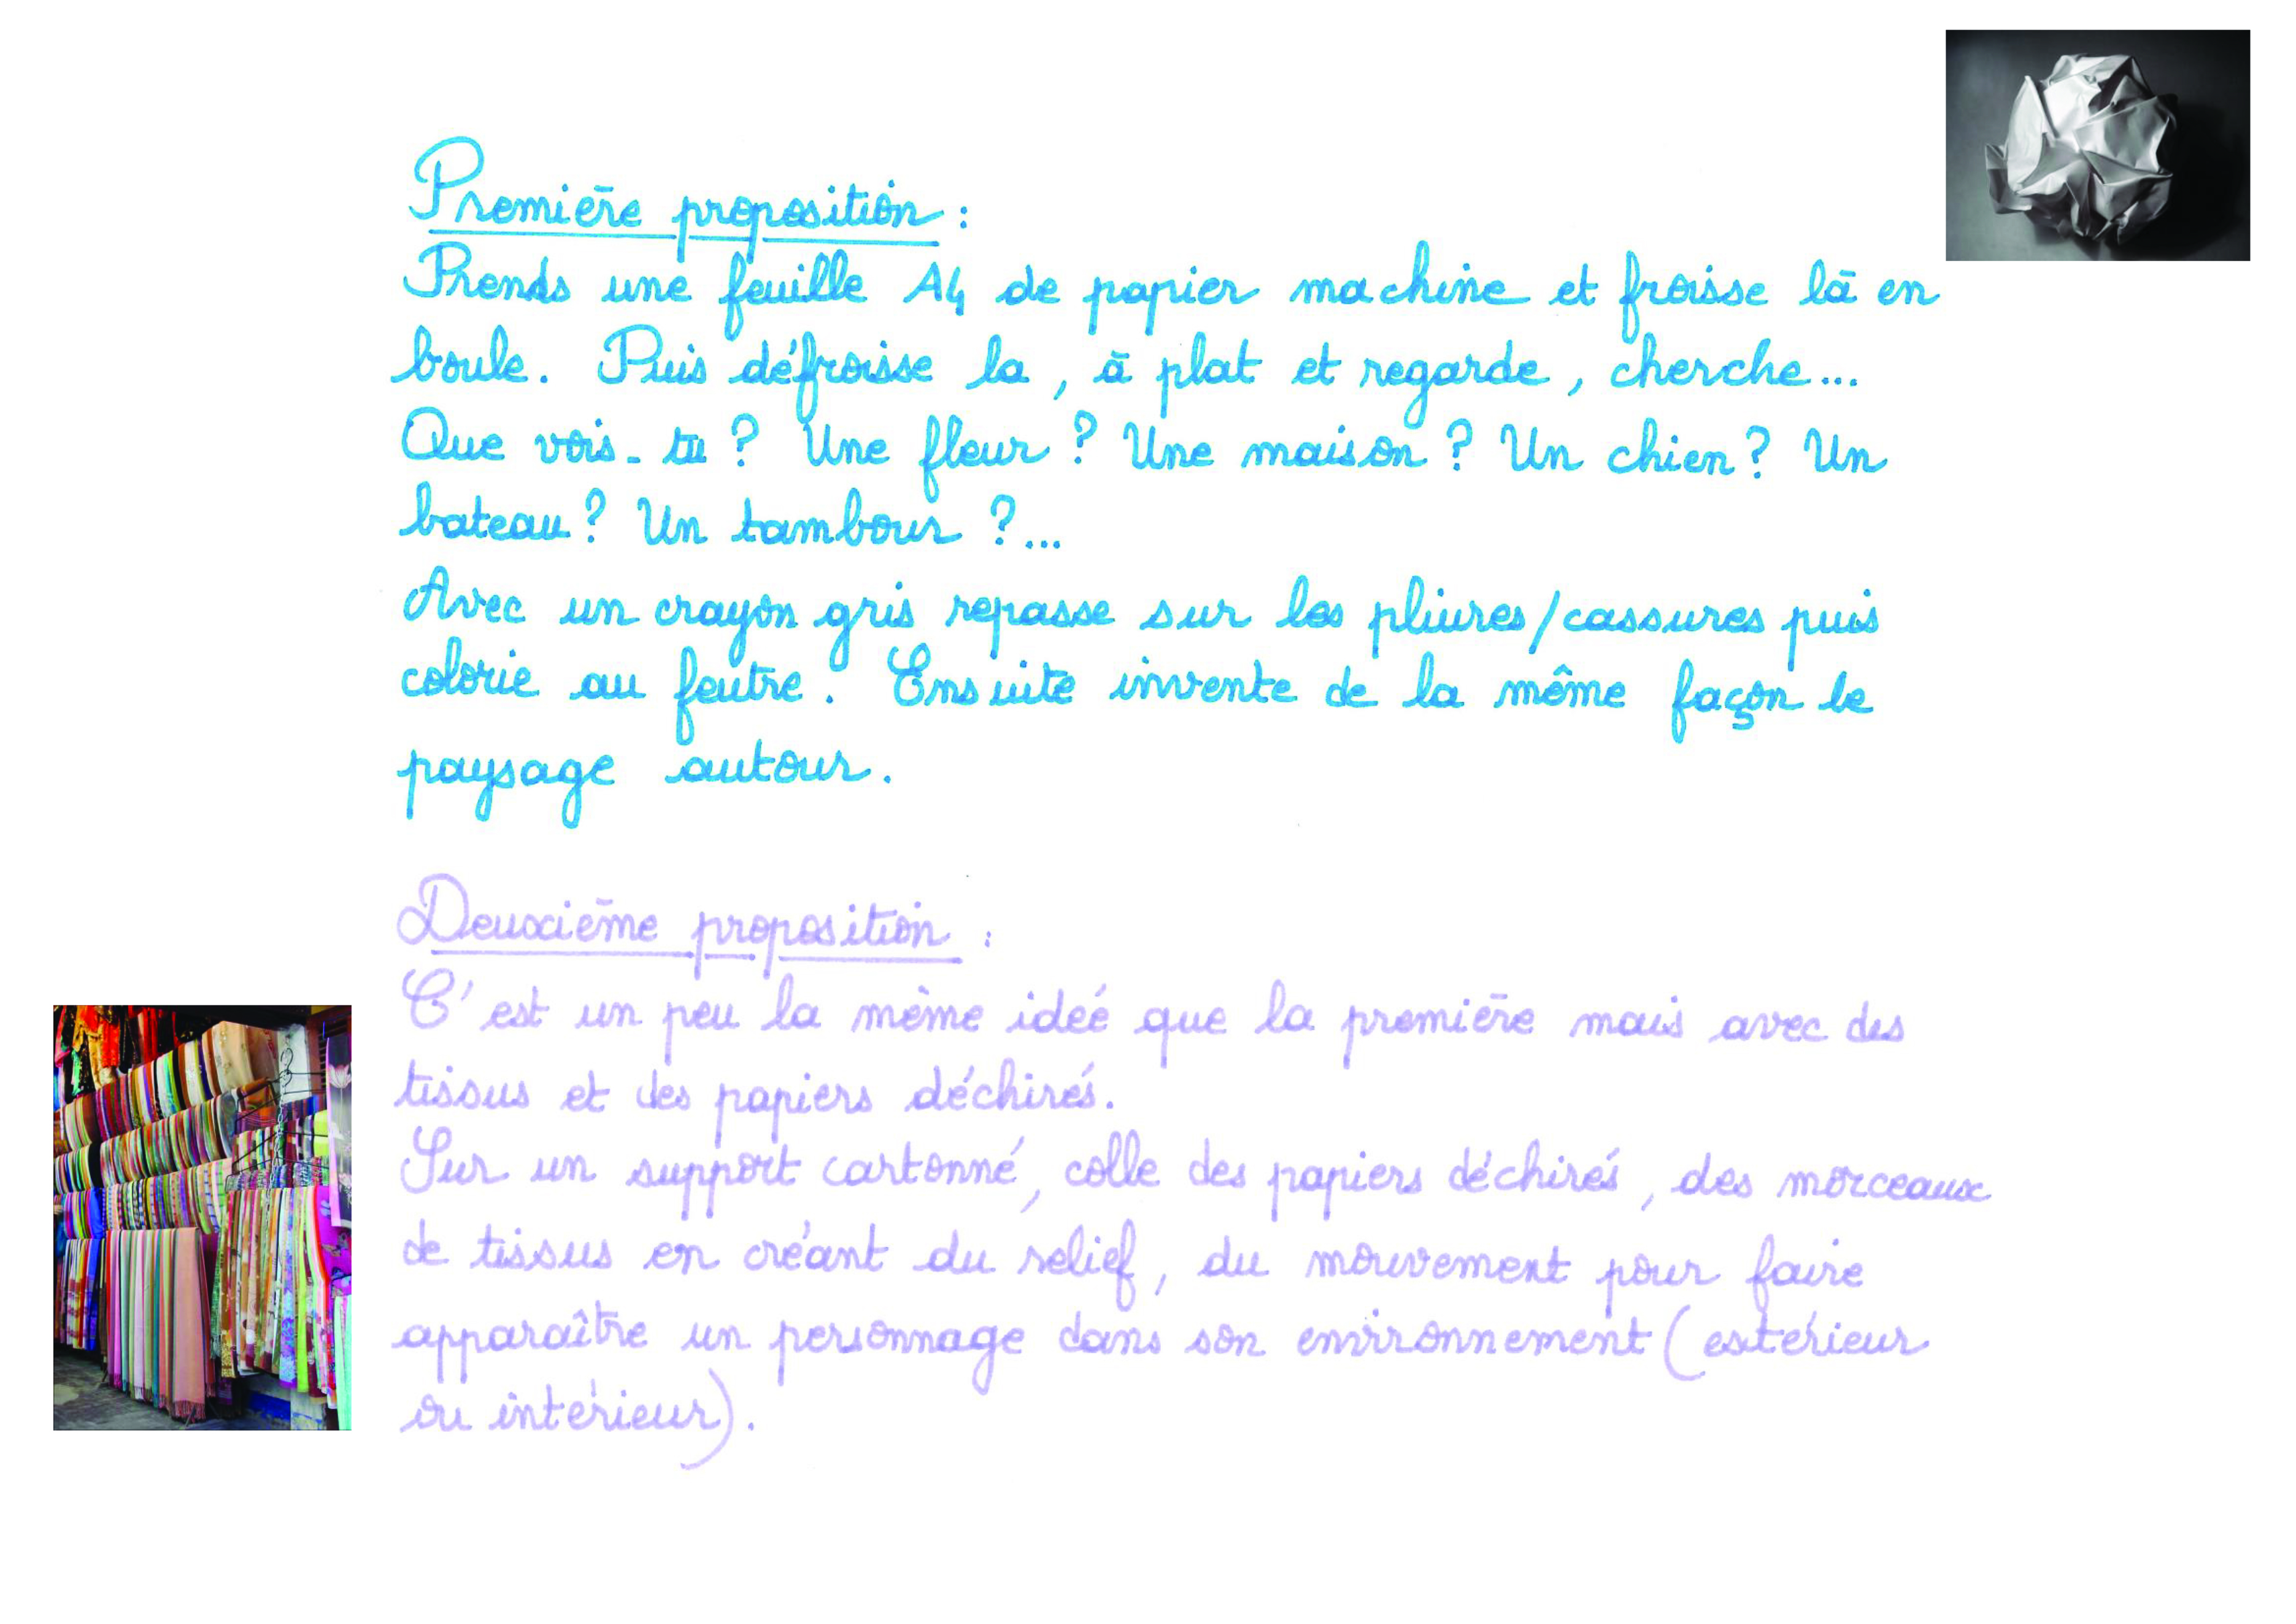 Première proposition :
Prends une feuille A4 de papier machine et froisse là en
boule. Puis défroisse la, à plat et regarde, cherche...
Que vois-tu ? Une fleur ? Une maison ? Un chien ? Un
bateau ? Un tambour ?...
Avec un crayon gris repasse sur les pliures/cassures puis
colorie au feutre. Ensuite invente de la même façon le
paysage autour.
Deuxième proposition :
C'est un peu la même ideé que la première mais avec des
tissus et des papiers déchirés.
Sur un support cartonné, colle des papiers déchirés, des morceaux
de tissus en créant du relief, du mouvement pour faire
apparaître un personnage dans son environnement (extérieur
ou intérieur).